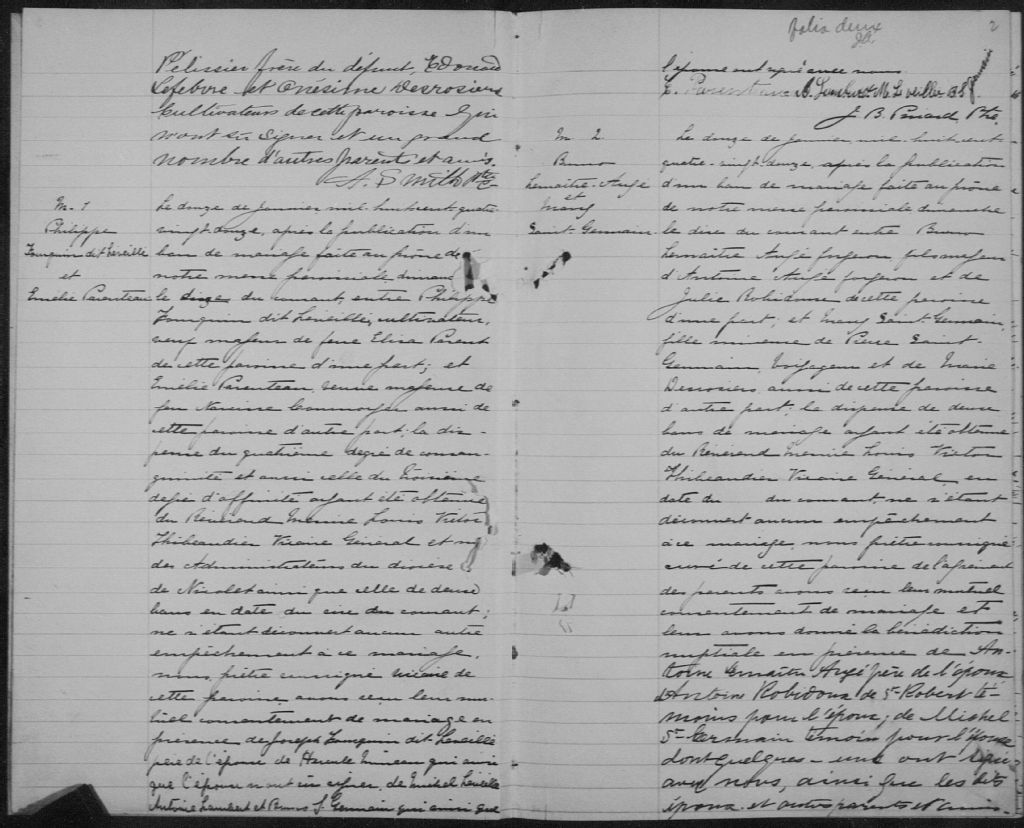 Pelissier frère du défunt, Edouard
Lefebvre et Onésime Desrosiers
Cultivateurs de cette paroisse qui
n'ont su signer et un grand
nombre d'autres parents et amis.
A. Smith Ptre
M. 1
Philippe
Jouguin dit Leveillé
et
Emélie Parenteau
Le douze de janvier, mil-huit cent quatre
vingt douze, après la publication d'un
ban de mariage faite au prône de
notre messe paroissiale, diman
le dix du courant, entre Philippe
Jouguin dit Leveillé, cultivateur,
veuf majeur de feue Elisa Parent
de cette paroisse d'une part; et
Emélie Parenteau, veuve majeure de
feu Narcisse Cournoyer aussi de
cette paroisse d'autre part; la dis-
pense du quatrième degré de consan-
guinité et aussi celle du troisième
degré d'affinité ayant été obtenue
du Révérend Messire Louis Victor
Thibaudier Vicaire Général et un
des Administrateurs du diocèse
de Nicolet ainsi que celle de deux
bans en date du du courant;
ne s'étant découvert aucun autre
empêchement à ce mariage,
nous, prêtre soussigné vicaire de
cette paroisse, avons reçu leur mu-
tuel consentement de mariage en
présence de Joseph Jouguin dit Leveillé
père de l'époux de qui ainsi
que l'épouse n'ont su signer, de Michel Leveillé
Antoine Lambert et Bruno St Germain qui ainsi que
folio deux
2
l'époux ont signé avec nous
E. Parenteau A. Lambert M. Leveiller B. St Germain
J. B. Pinard Ptre
M. 2
Bruno
Lemaitre-Augé
et
Mary
Saint-Germain
Le douze de janvier, mil-huit-cent-
quatre-vingt-douze, après la publication
d'un ban de mariage faite au prône
de notre messe paroissiale dimanche
le dix du courant entre Bruno
Lemaître Augé forgeron, fils majeur
d'Antoine Augé forgeron et de
Julie Robidoux de cette paroisse
d'une part; et Mary Saint-Germain,
fille mineure de Pierre Saint-
Germain, Voyageur et de Marie
Desrosiers aussi de cette paroisse
d'autre part; la dispense de deux
bans de mariage ayant été obtenue
du Révérend Messire Louis Victor
Thibeaudier Vicaire Général, en
date du du courant, ne s'étant
découvert aucun empêchement
à ce mariage, nous, prêtre soussigné
curé de cette paroisse de l'agrément
des parents avons reçu leur mutuel
consentement de mariage et
leur avons donné la bénédiction
nuptiale en présence de An-
toine Lemaître Augé père de l'époux
d'Antoine Robidoux de St Robert té-
moins pour l'époux; de Michel
St-Germain témoin pour l'épouse
dont quelques-uns ont signé
avec nous, ainsi que les dits
époux et autres parents et amis.